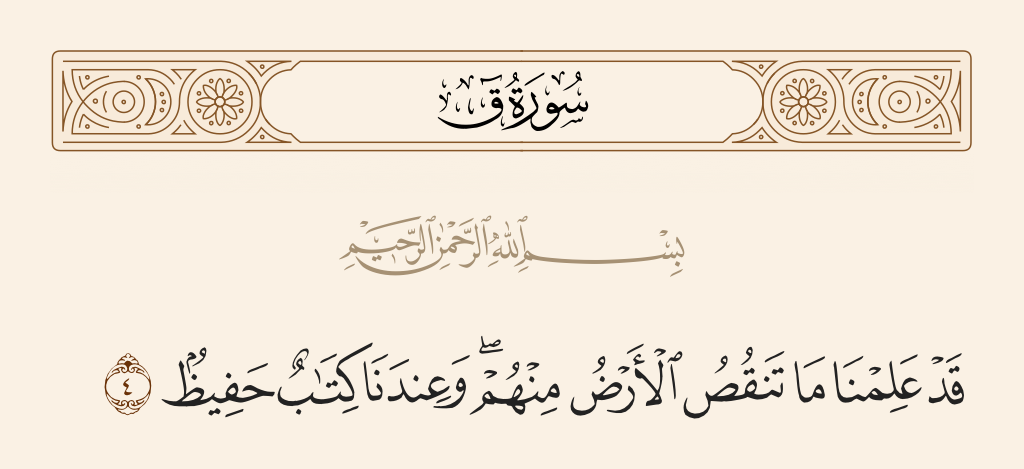 سُورَةُ قٓ
بِسْمِ ٱللَّهِ ٱلرَّحْمَٰنِ ٱلرَّحِيمِ
قَدْ عَلِمْنَا مَا تَنقُصُ ٱلْأَرْضُ مِنْهُمْ ۖ وَعِندَنَا كِتَٰبٌ حَفِيظٌۢ ٤